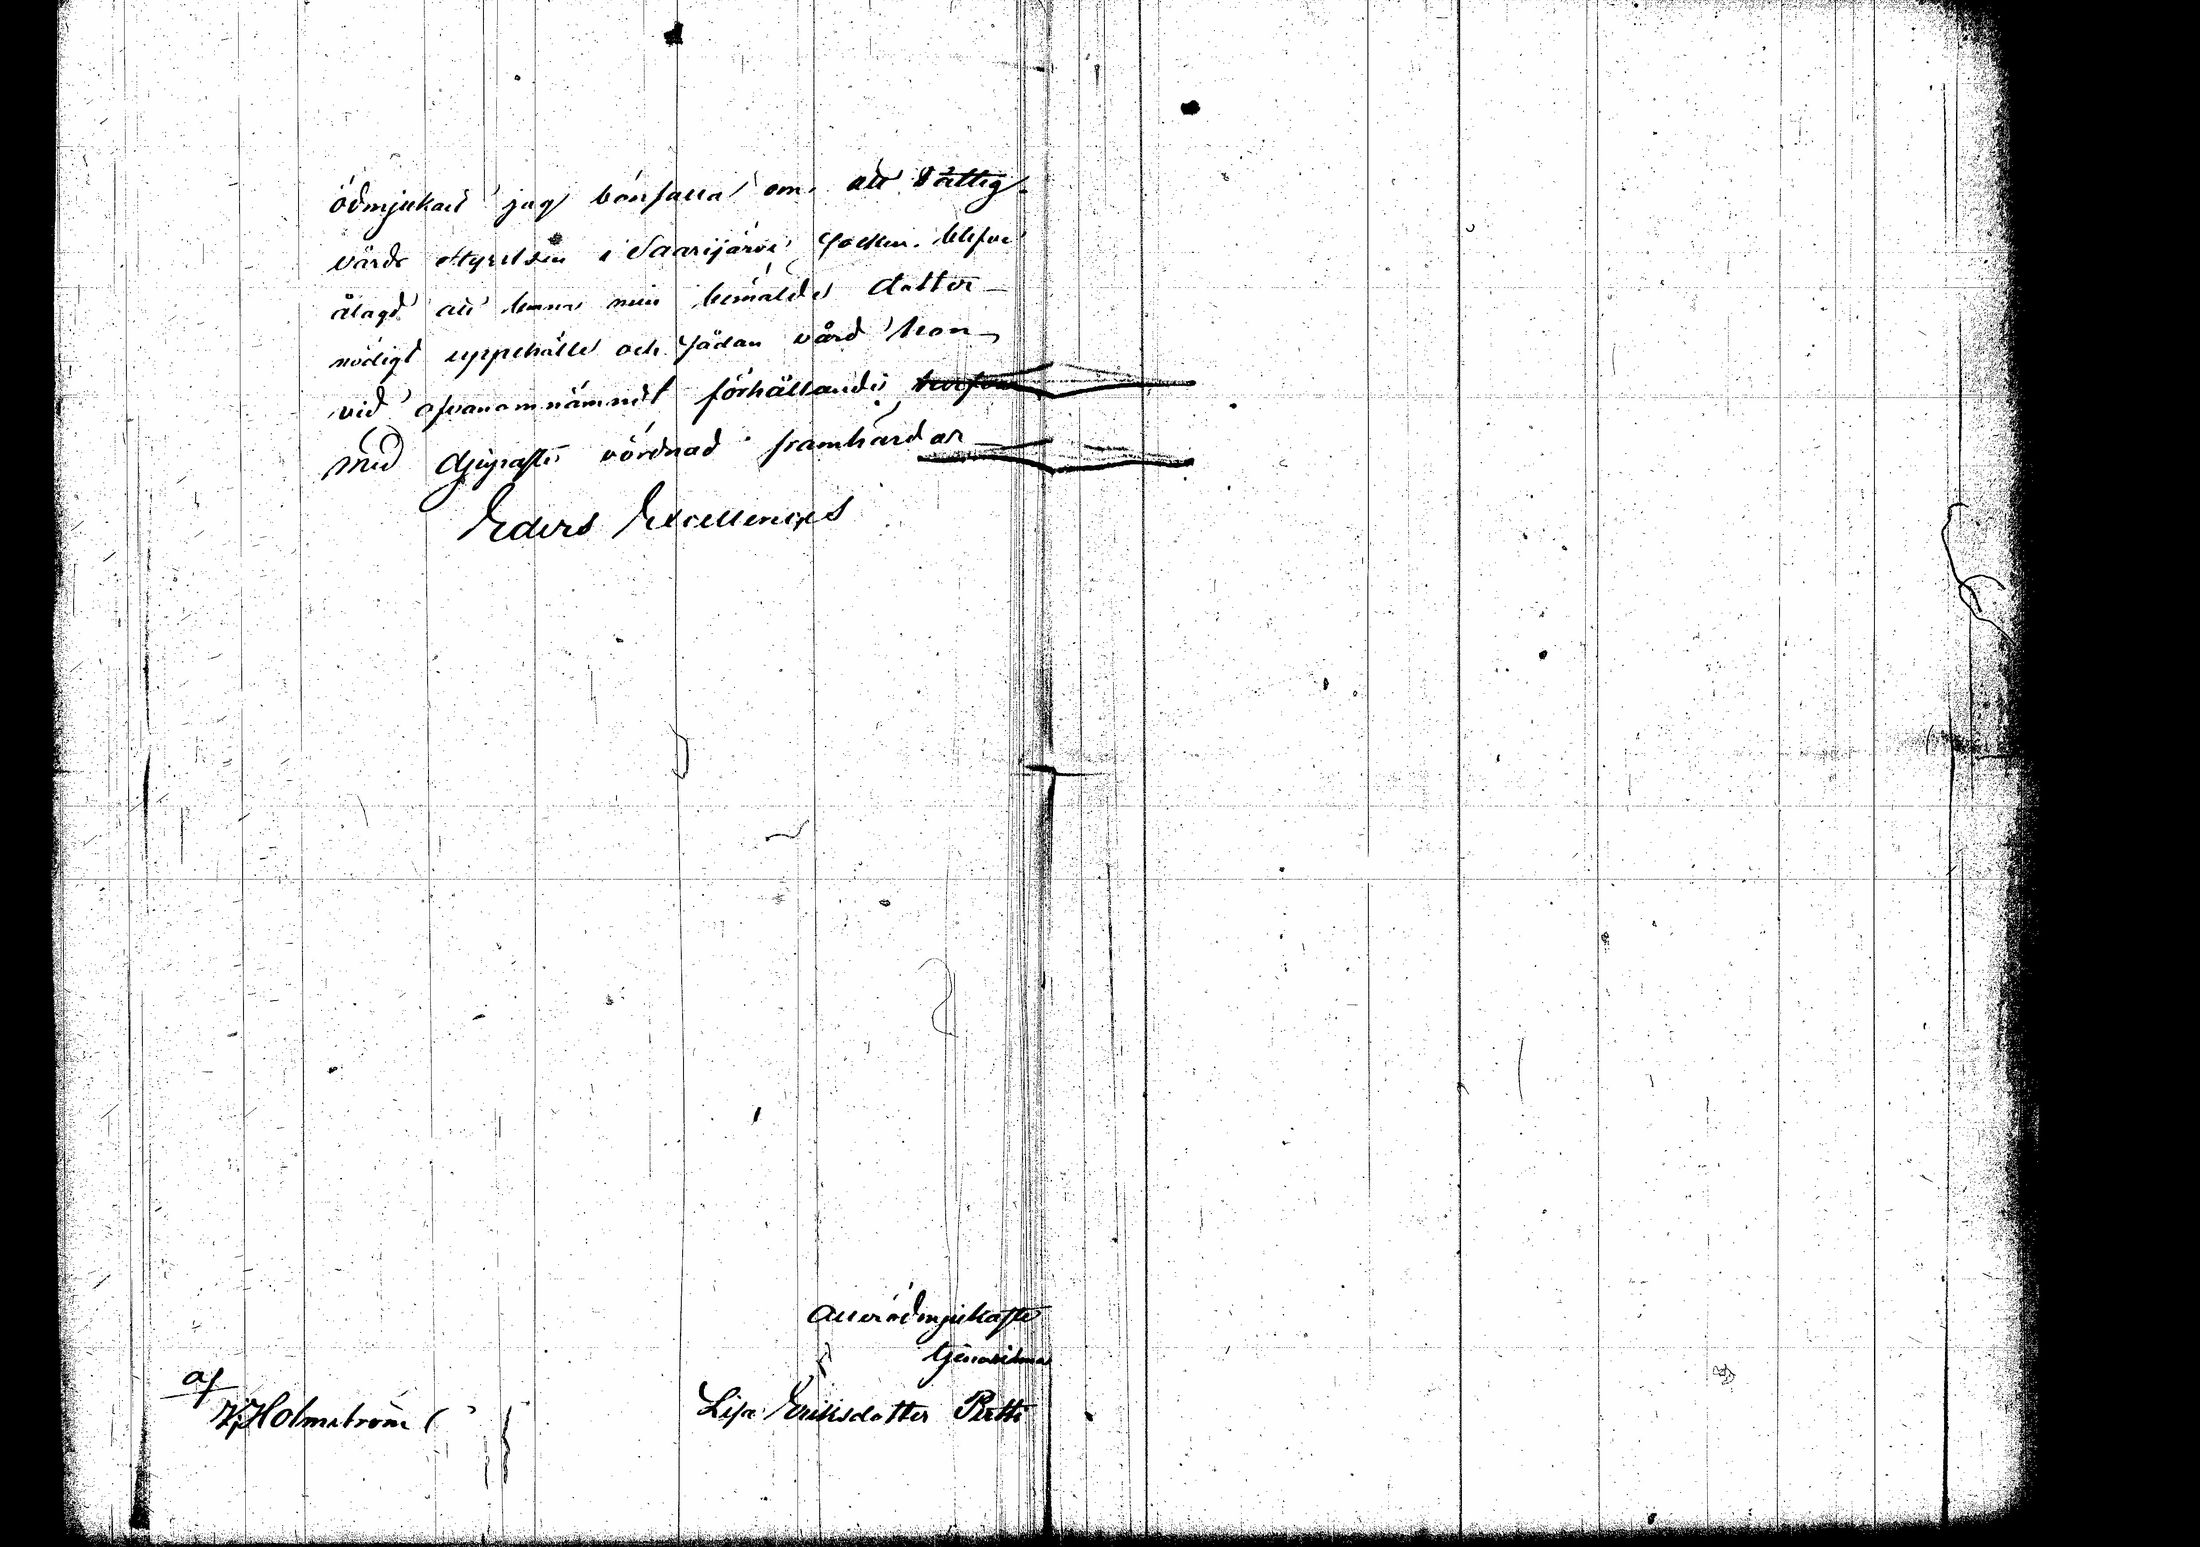 ödmjukast jag bönfalla om att Fattig-
vårds styrelsen i Saarijärvi Socken blefve
ålagd att lemna min bemälde dotter
nödigt uppehälle och sådan vård hon
vid ofvanomnämndt förhållande tarfvar
Med djupaste vördnad framhärdar
Eders Excellences
Allerödmjukaste
tjenarinna
Lisa Eriksdotter Pertti
af
Holmström